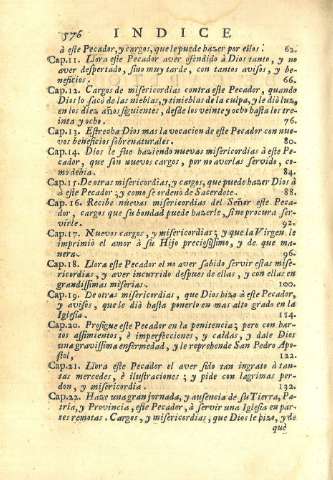 576 INDICE
à este Pecador, y cargos, que le puede hazer por ellos. 62.
Cap. 11. Llora este Pecador aver ofendido à Dios tanto, y no
aver despertado, sino muy tarde, con tantos avisos, y be-
neficios. 66.
Cap. 12. Cargos de misericordias contra este Pecador, quando
Dios lo sacò de las nieblas, y tinieblas de la culpa, y le diò luz,
en los diez años siguientes, desde los veinte y ocho hasta los tre
inta y ocho. 76.
Cap. 13. Estrecha Dios mas la vocacion de este Pecador con nue-
vos beneficios sobrenaturales. 80.
Cap. 14. Dios le fue haziendo nuevas misericordias à este Pe-
cador, que son nuevos cargos, por no averlas servido, co-
mo devia. 84.
Cap. 15. De otras misericordias, y cargos, que puede hazer Dios à
à este Pecador; y como se ordenò de Sacerdote. 88.
Cap. 16. Recibe nuevas misericordias del Señor este Peca-
dor, cargos que su bondad puede hazerle, si no procura ser-
virle. 92.
Cap. 17. Nuevos cargos, y misericordias; y que la Virgen le
imprimiò el amor à su Hijo preciosissimo, y de que ma-
nera. 96.
Cap. 18. Llora este Pecador el no aver sabido servir estas mise-
ricordias, y aver incurrido despues de ellas, y con ellas en
grandissimas miserias. 100.
Cap. 19. De otras misericordias, que Dios hizo à este Pecador,
y avisos, que le diò hasta ponerlo en mas alto grado en la
Iglesia. 114.
Cap. 20. Prosigue este Pecador en la penitencia; pero con har-
tos assimientos, è imperfecciones, y caìdas, y dale Dios
una gravissima enfermedad, y le reprehende San Pedro Apo-
stol. 122.
Cap. 21. Llora este Pecador el aver sido tan ingrato à tan-
tas mercedes, è ilustraciones; y pide con lagrimas per-
don, y misericordia. 132.
Cap. 22. Haze una gran jornada, y ausencia de su Tierra, Pa-
tria, y Provincia, este Pecador, à servir una Iglesia en par-
tes remotas. Cargos, y misericordias, que Dios le hizo, y de
què